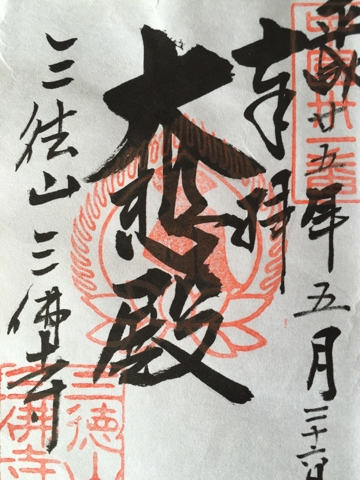 平成廿五年五月二十六日
奉拝
大悲殿
三徳山三佛寺
三徳山
三佛寺